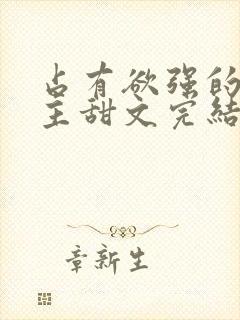 占有欲强的
主甜文完结
章新生